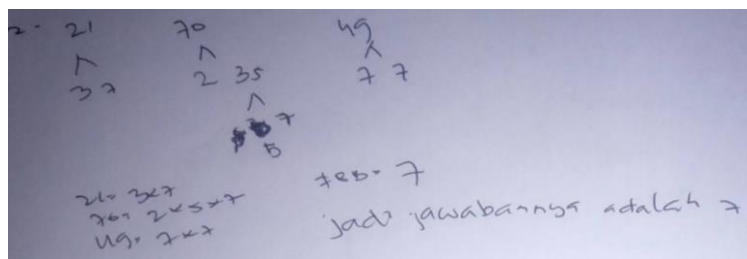 2. 21 70 49
3 7 2 35 7 7
5 7
21 = 3x7
70 = 2x5x7
49 = 7x7
FPB = 7
jadi jawabannya adalah 7